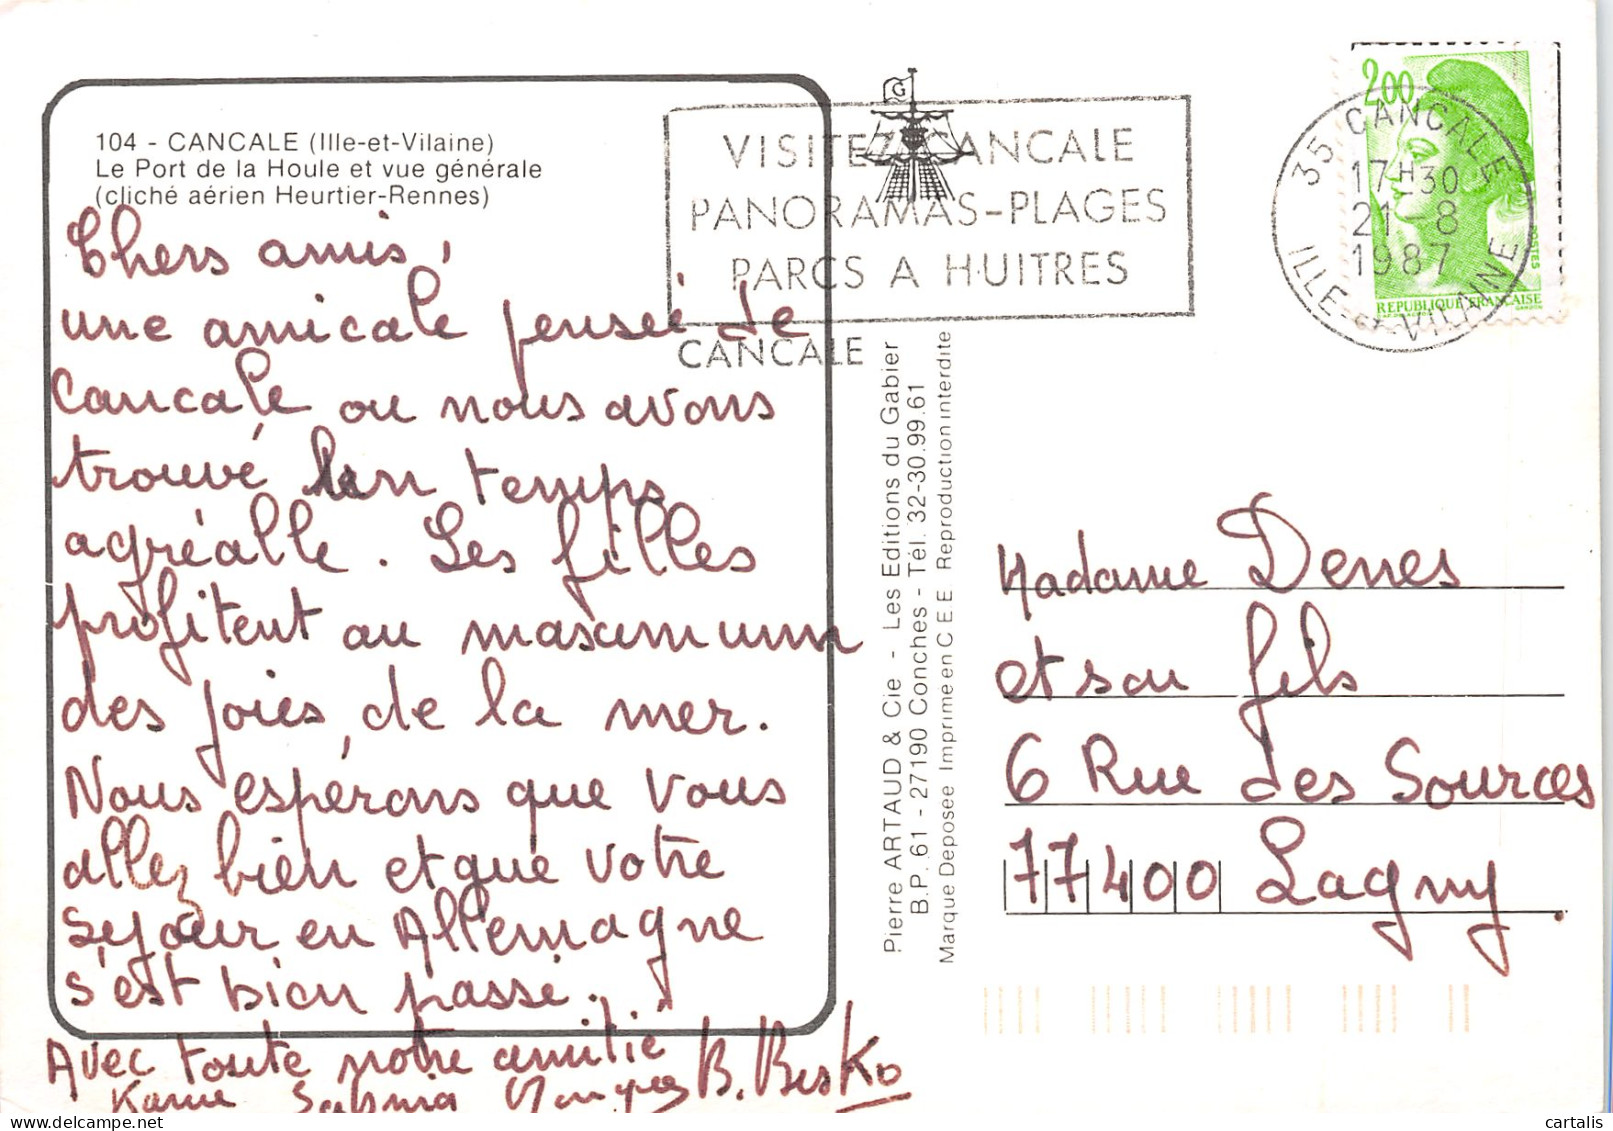 104 - CANCALE (Ille-et-Vilaine)
Le Port de la Houle et vue générale
(cliché aérien Heurtier-Rennes)
Chers amis,
une amicale pensée de
Cancale ou nous avons
trouvé un temps
agréable. Les filles
profitent au maximum
des joies de la mer.
Nous espérons que vous
allez bien et que votre
séjour en Allemagne
s'est bien passé.
Avec toute notre amitié
B. Besko
G
VISITEZ CANCALE
PANORAMAS-PLAGES
PARCS A HUITRES
CANCALE
2,00
POSTES
REPUBLIQUE FRANCAISE
35 CANCALE
17H30
21-8
1987
ILLE-et-VILAINE
Pierre ARTAUD & Cie - Les Editions du Gabier
B.P. 61 - 27190 Conches - Tél. 32-30.99.61
Marque Deposee Imprime en C E E Reproduction interdite
Madame Denes
et son fils
6 Rue des Sources
77400 Lagny.